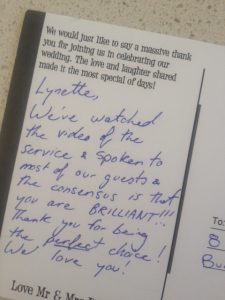 We would just like to say a massive thank
you for joining us in celebrating our
wedding. The love and laughter shared
made it the most special of days!
Lynette,
We've watched
the video of the
service & spoken to
most of our guests &
the consensus is that
you are BRILLIANT!!!
Thank you for being
the perfect choice!
We love you!
Love Mr & Mrs
To:
8
Bu